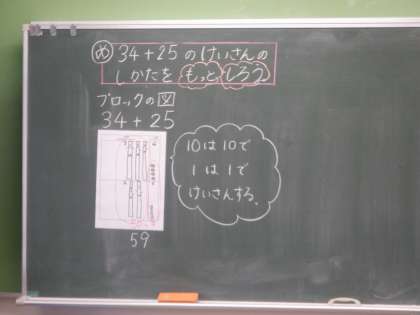 め 34+25のけいさんの
しかたをもっとしろう
ブロックの図
34+25
59
10は10で
1は1で
けいさんする。